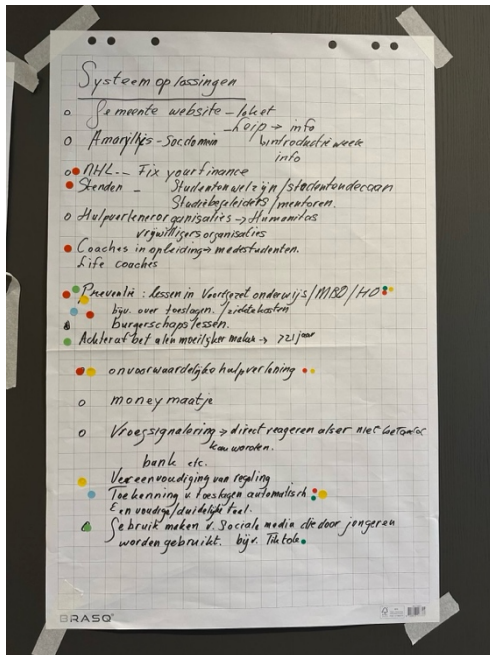 Systeemoplossingen
o Gemeente website - loket
- help → info
o Amaryllis - Socdomein introductieweek
info
o NHL - Fix your finance
Stenden - Studentenwelzijn/studentendecaan
Studiebegeleiders/mentoren.
o Hulpverlenerorganisaties → Humanitas
vrijwilligersorganisaties
Coaches in opleiding → medestudenten.
Life coaches
Preventie: lessen in Voortgezet onderwijs/MBO/HO
bijv. over toeslagen. /ziektekosten
burgerschapslessen.
Achteraf betalen moeilijker maken → >21 jaar
onvoorwaardelijke hulpverlening
o moneymaatje
o Vroegsignalering → direct reageren als er niet betaald
kan worden.
bank etc.
Vereenvoudiging van regeling
Toekenning v. toeslagen automatisch
Eenvoudige/duidelijke taal.
Gebruik maken v. Sociale media die door jongeren
worden gebruikt. bijv. Tiktok.
BRASQ
FSC